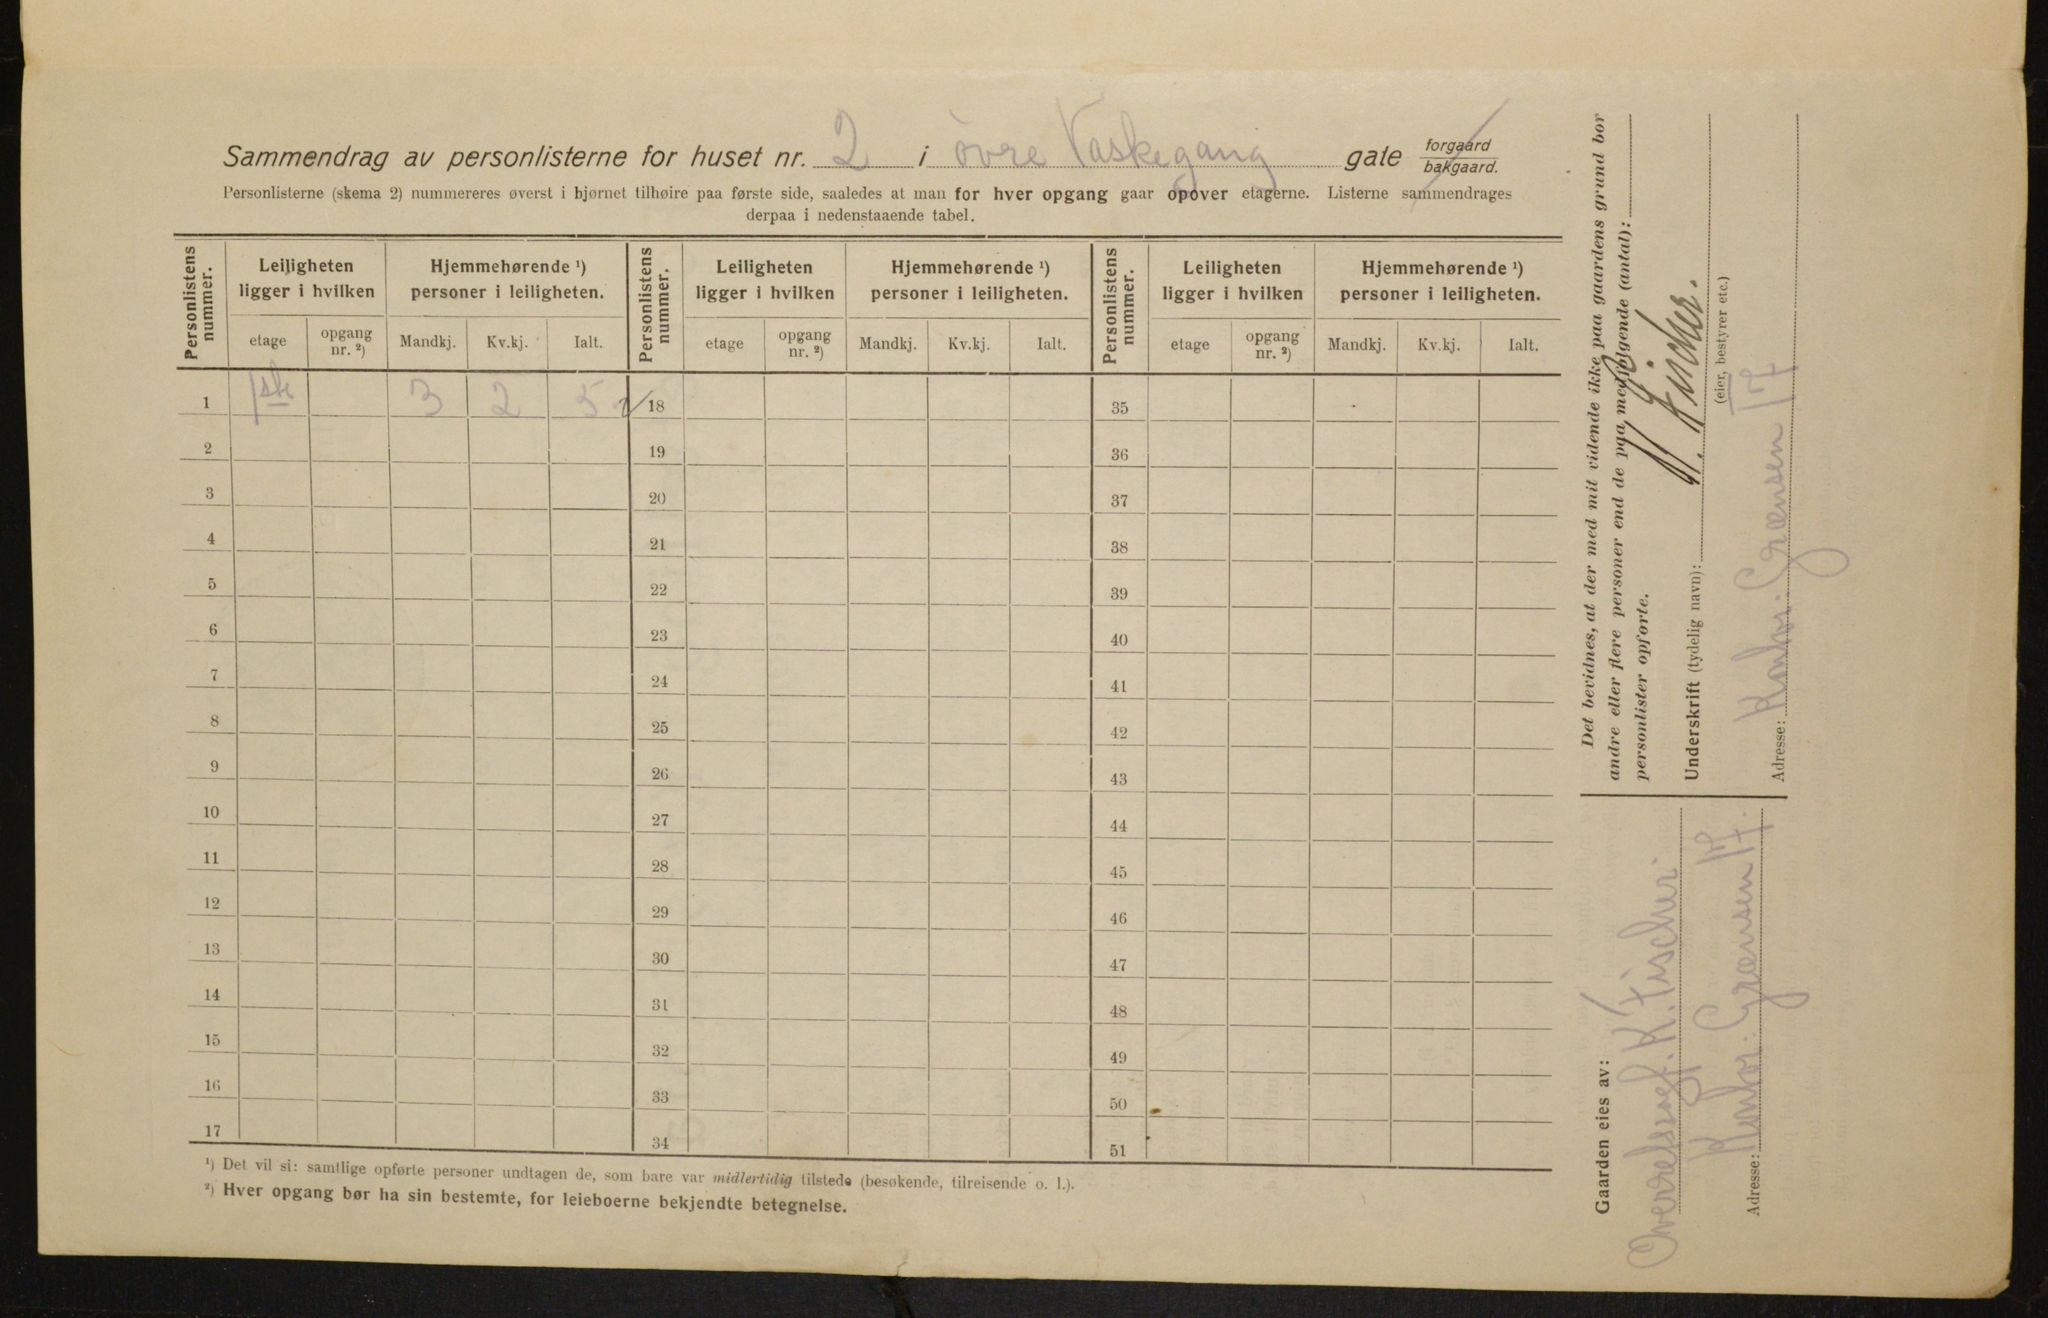 Sammendrag av personlisterne for huset nr. 2 i øvre Vaskegang gate forgaard bakgaard.
Personlisterne (skema 2) nummereres øverst i hjørnet tilhøire paa første side, saaledes at man for hver opgang gaar opover etagerne. Listerne sammendrages
derpaa i nedenstaaende tabel.
Personlistens nummer. Leiligheten ligger i hvilken Hjemmehørende ¹) personer i leiligheten. Personlistens nummer. Leiligheten ligger i hvilken Hjemmehørende ¹) personer i leiligheten. Personlistens nummer. Leiligheten ligger i hvilken Hjemmehørende ¹) personer i leiligheten.
etage opgang nr. ²) Mandkj. Kv.kj. Ialt. etage opgang nr. ²) Mandkj. Kv.kj. Ialt. etage opgang nr. ²) Mandkj. Kv.kj. Ialt.
1 1ste 3 2 5 18 35
2 19 36
3 20 37
4 21 38
5 22 39
6 23 40
7 24 41
8 25 42
9 26 43
10 27 44
11 28 45
12 29 46
13 30 47
14 31 48
15 32 49
16 33 50
17 34 51
¹) Det vil si: samtlige opførte personer undtagen de, som bare var midlertidig tilstede (besøkende, tilreisende o. l.).
²) Hver opgang bør ha sin bestemte, for leieboerne bekjendte betegnelse.
Det bevidnes, at der med mit vidende ikke paa gaardens grund bor
andre eller flere personer end de paa medfølgende (antal):
personlister opførte.
Underskrift (tydelig navn): K. Fischer.
(eier, bestyrer etc.)
Adresse: Kontor. Grænsen 17
Gaarden eies av:
K. Fischer
Kontor. Grænsen 17.
Adresse: